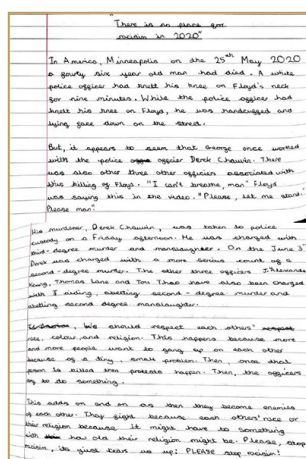 "There is no place for
racism in 2020"
In America, Minneapolis on the 25th May 2020
a fourty six year old man had died. A white
police officer had knelt his knee on Floyd's neck
for nine minutes. While the police officer had
knelt his knee on Floyd, he was handcuffed and
lying face down on the street.
But, it appears to seem that George once worked
with the police officer Derek Chauvin. There
was also other three other officers associated with
this killing of Floyd. "I can't breathe, man" Floyd
was saying this in the video. "Please, let me stand.
Please man"
His murderer, Derek Chauvin, was taken to police
custody on a Friday afternoon. He was charged with
third-degree murder and manslaughter. On the June 3rd
Derek was charged with a more serious count of a
second-degree murder. The other three officers J.Alexander
Kueng, Thomas Lane and Tou Thao have also been charged
with 2 aiding, abetting second-degree murder and
abetting second degree manslaughter.
We should respect each others'
race, colour and religion. This happens because more
and more people want to gang up on each other
because of a tiny, small problem. Then, once that
person is killed then protests happen. Then, the officers
try to do something.
This adds on and on as then they become enemies
of each other. They fight because each others' race or
their religion because it might have to something
with how old their religion might be. Please, stop
racism, its just tears us up! PLEASE stop racism!